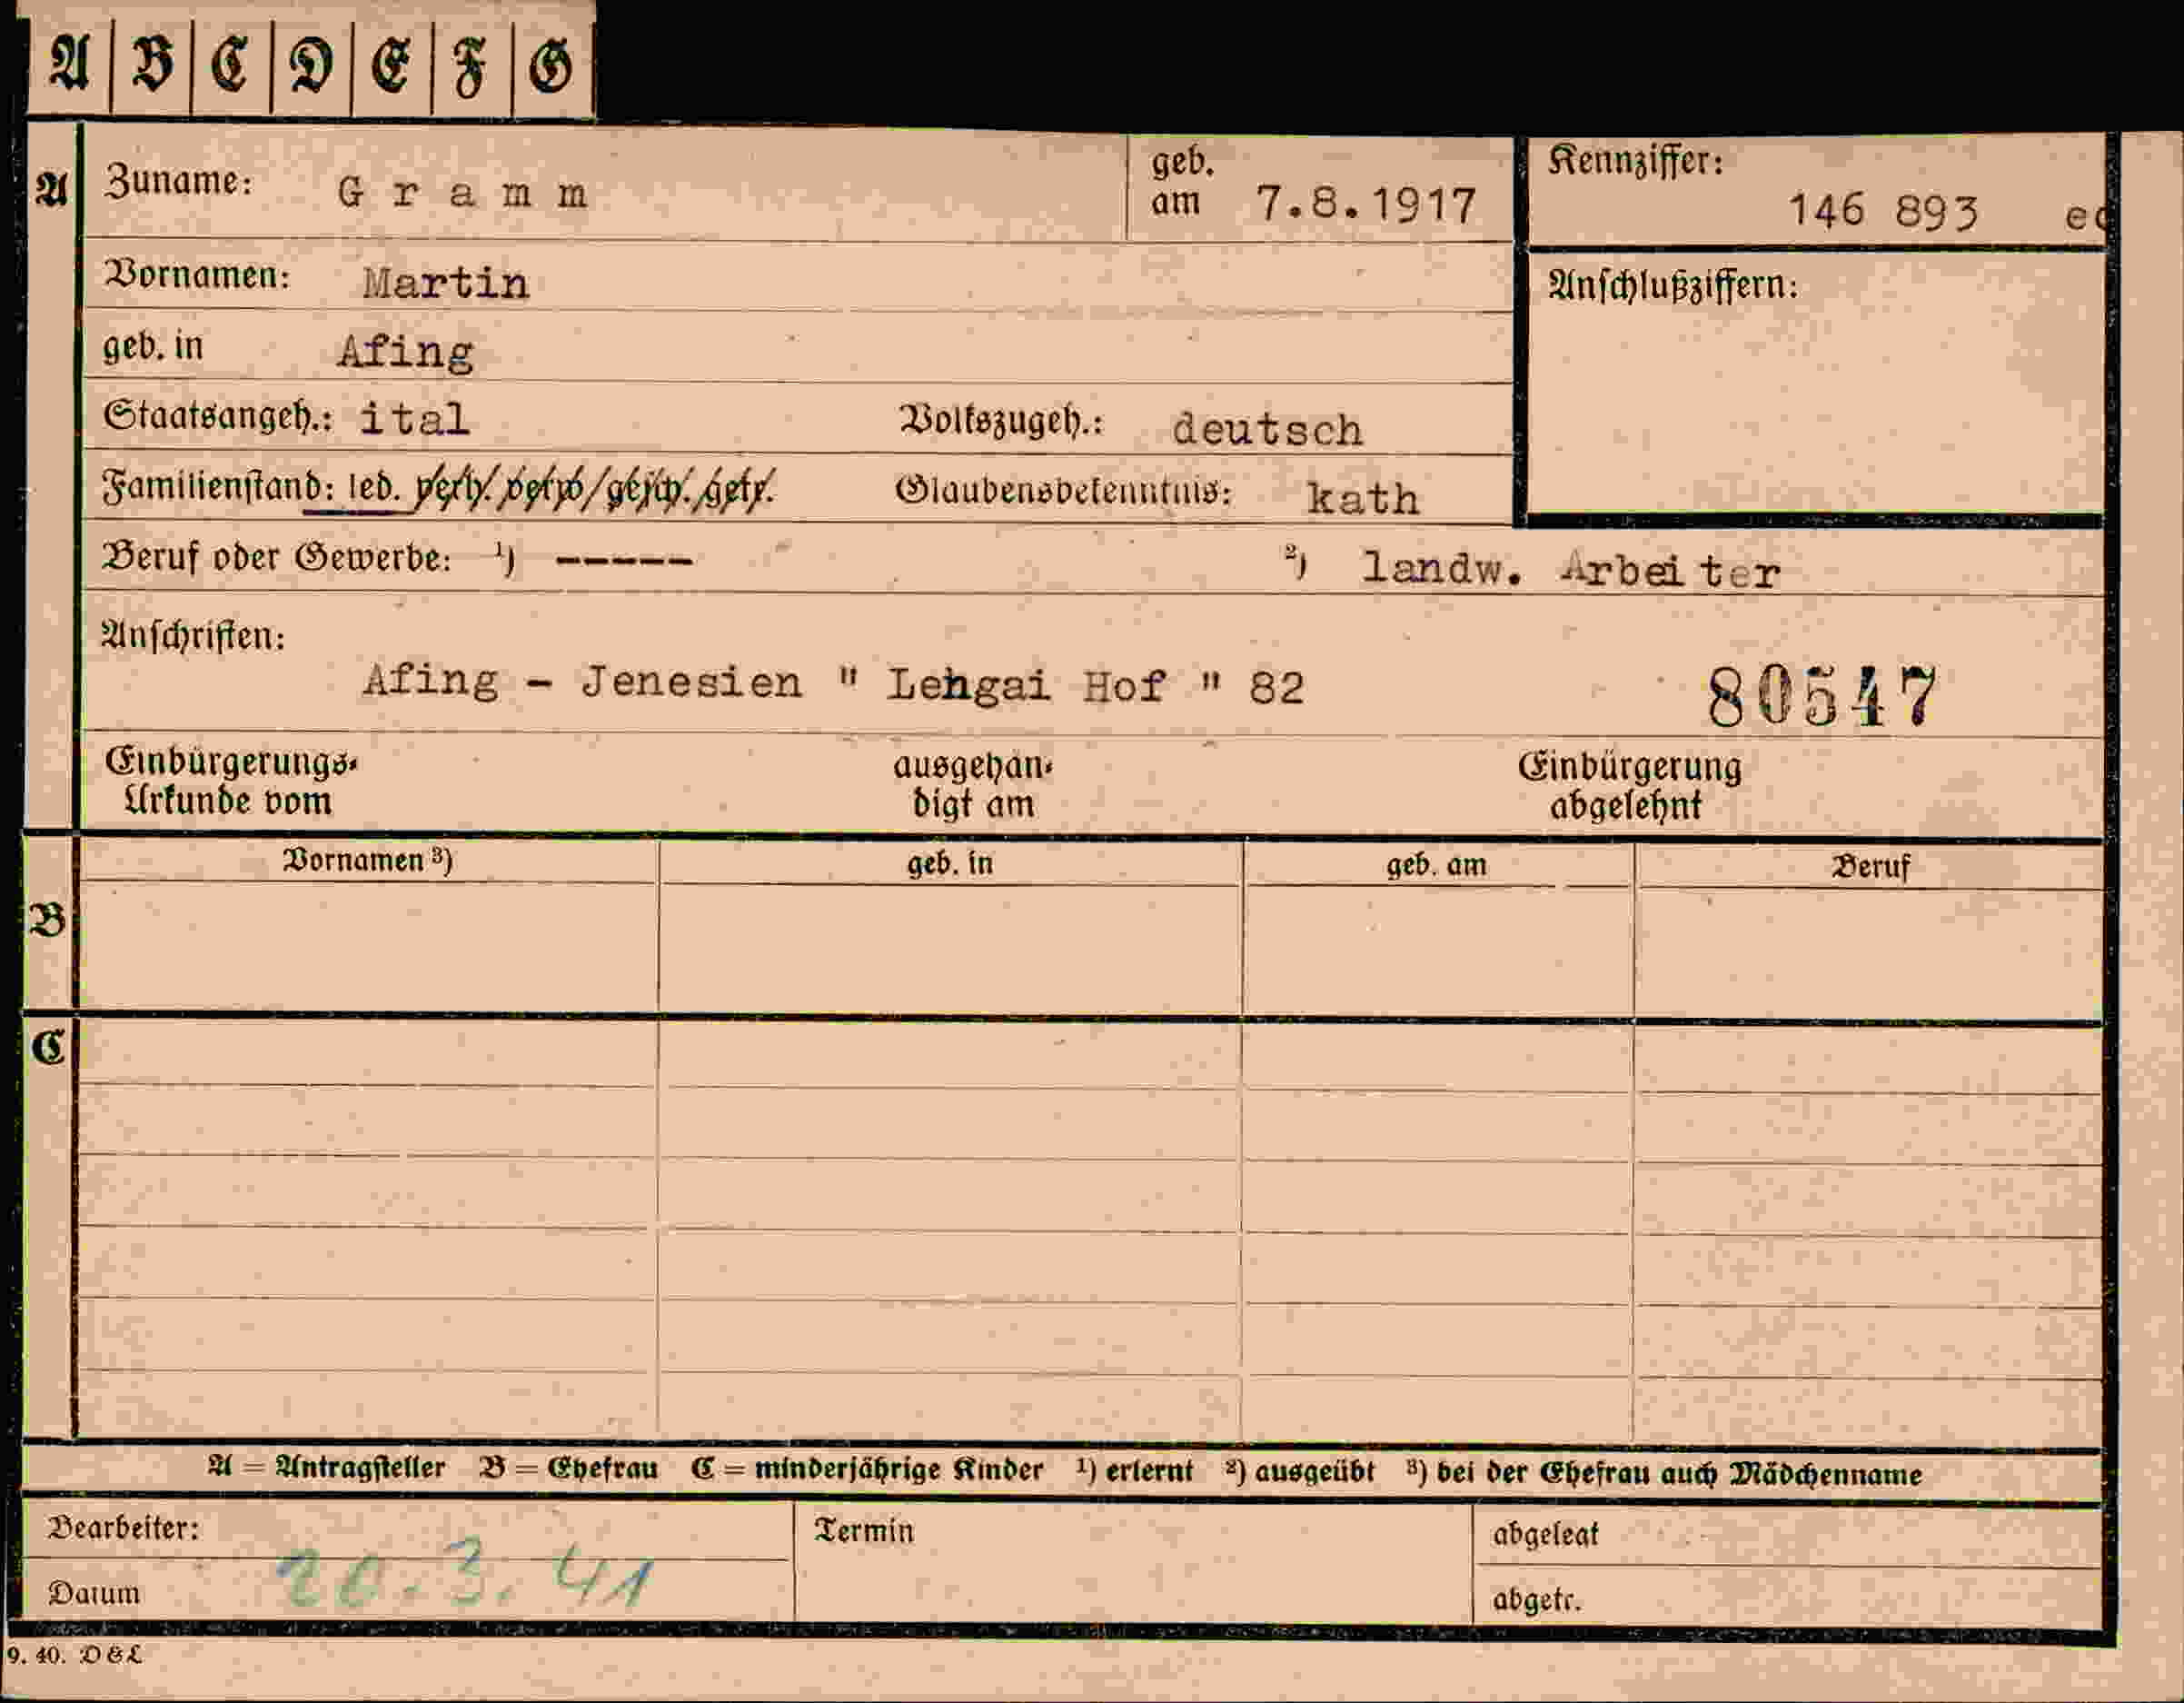 A B C D E F G
A Zuname: Gramm geb. am 7.8.1917 Kennziffer: 146 893
Vornamen: Martin Anschlußziffern:
geb. in Afing
Staatsangeh.: ital Volkszugeh.: deutsch
Familienstand: led. verh./verw./gesch./getr. Glaubensbekenntnis: kath
Beruf oder Gewerbe: ¹) ----- ²) landw. Arbeiter
Anschriften:
Afing - Jenesien " Lehgai Hof " 82 80547
Einbürgerungs-Urkunde vom ausgehändigt am Einbürgerung abgelehnt
Vornamen ³) geb. in geb. am Beruf
B
C
A = Antragsteller B = Ehefrau C = minderjährige Kinder ¹) erlernt ²) ausgeübt ³) bei der Ehefrau auch Mädchenname
Bearbeiter: Termin abgelegt
Datum 20.3.41 abgetr.
9. 40. D & L